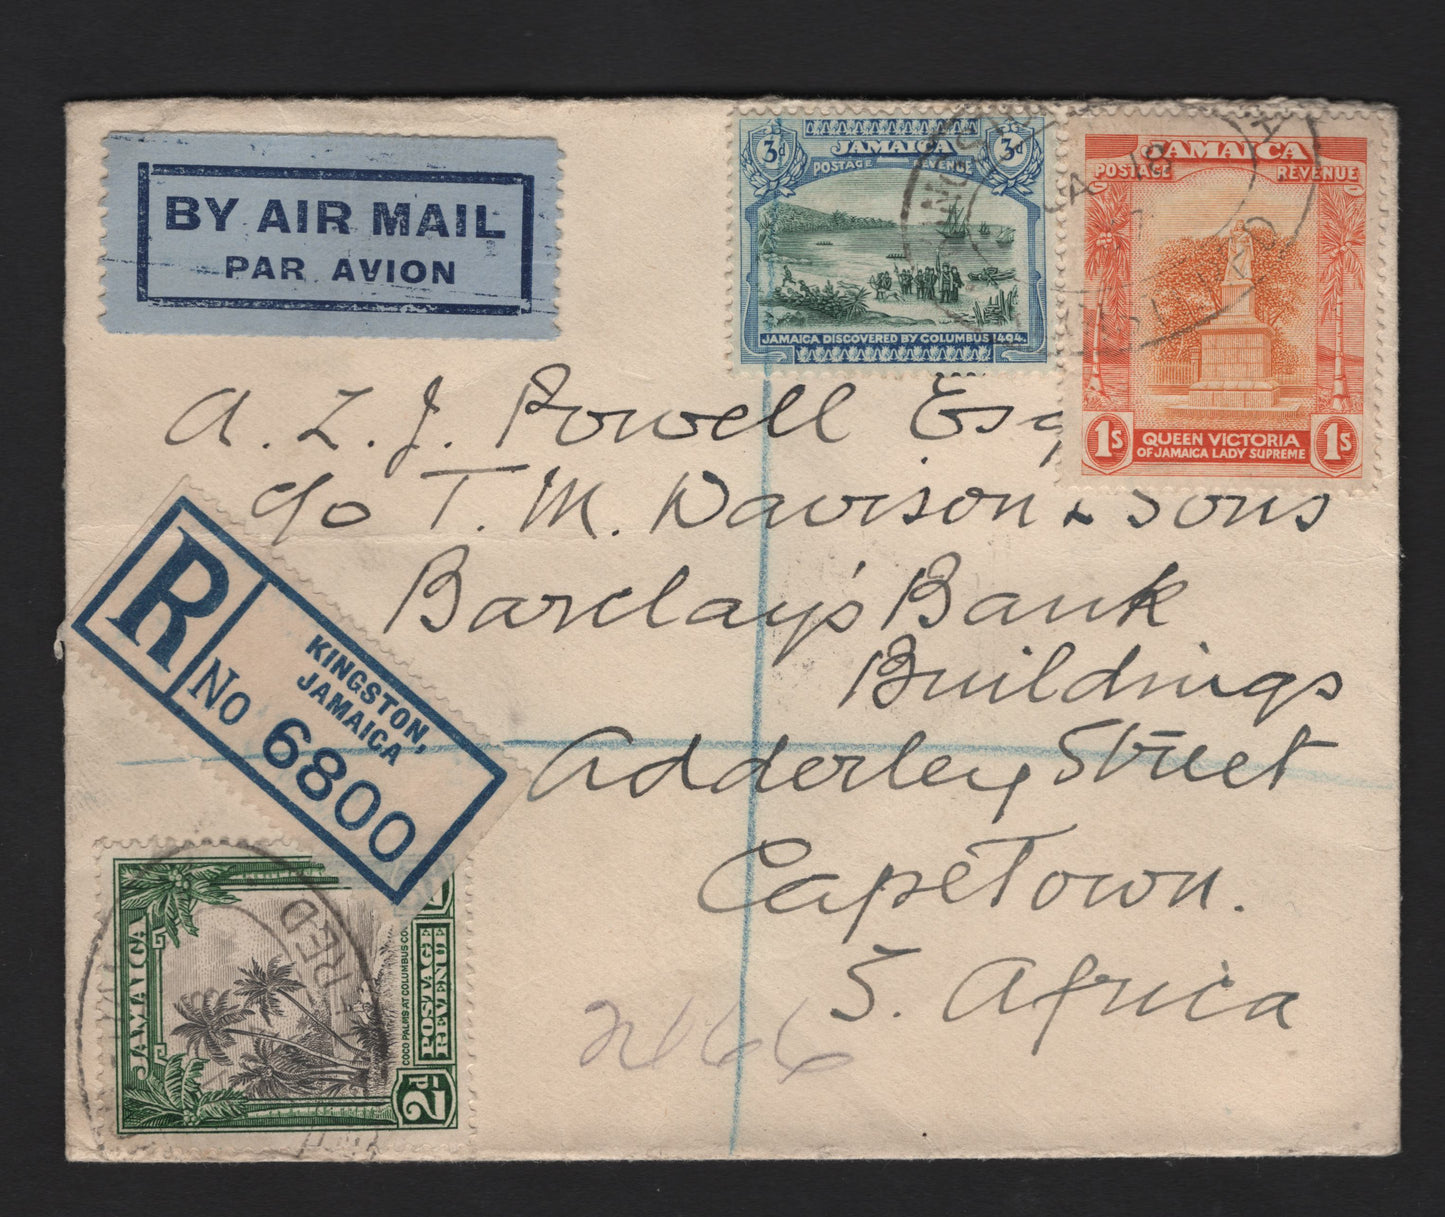 BY AIR MAIL
PAR AVION
3d JAMAICA 3d
POSTAGE REVENUE
JAMAICA DISCOVERED BY COLUMBUS 1494.
JAMAICA
POSTAGE REVENUE
1S QUEEN VICTORIA 1S
OF JAMAICA LADY SUPREME
A. L. J. Powell Esq
c/o T. M. Davison & Sons
Barclay's Bank
Buildings
Adderley Street
CapeTown.
S. Africa
R No 6800
KINGSTON,
JAMAICA
JAMAICA
COCO PALMS AT COLUMBUS CO
POSTAGE
REVENUE
2d
2466